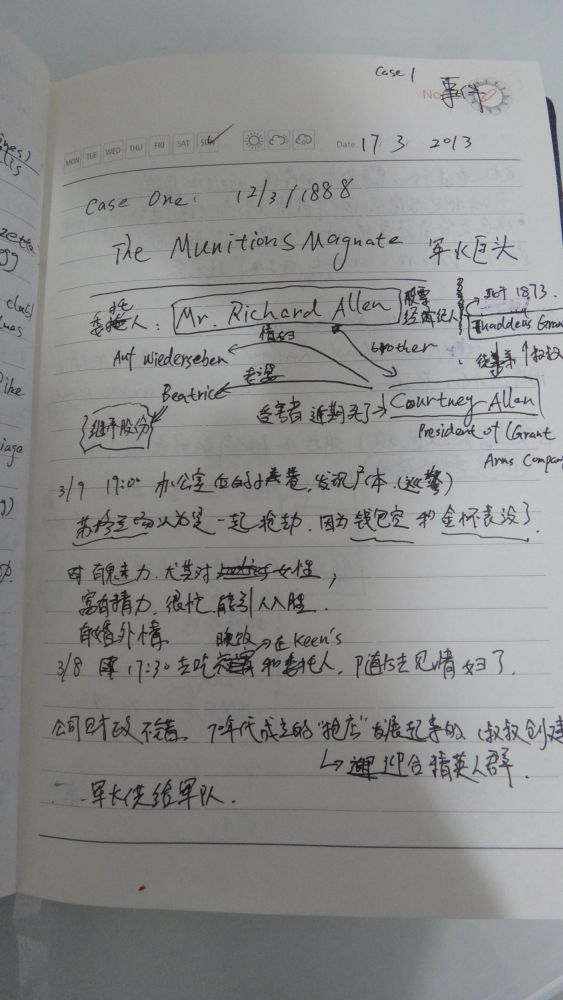 Case 1
No. 事件
MON TUE WED THU FRI SAT SUN Date: 17/ 3/ 2013
Case One: 12/3/1888
The Munitions Magnate 军火巨头
委托人: Mr. Richard Allen 股票经纪人
死于1873.
Thaddeus Grant
叔叔
情妇
brother
Auf Wiederseben
老婆
Beatrice
继承股份
受害者 近期死了→ Courtney Allen
President of Grant
Arms Company
3/9 17:00 办公室 后的小巷, 发现尸体. (巡警)
苏格兰场认为是一起抢劫. 因为钱包空 和金怀表没了.
有魅力. 尤其对女性,
富有精力. 很忙. 能引人入胜.
有婚外情
晚饭→在Keen's
3/8 17:30 去吃 和委托人, 随后去见情妇了.
公司财政不错. 70年代成立的“枪店”发展起来的 (叔叔创建
↳ 迎合精英人群.
军火供给军队.